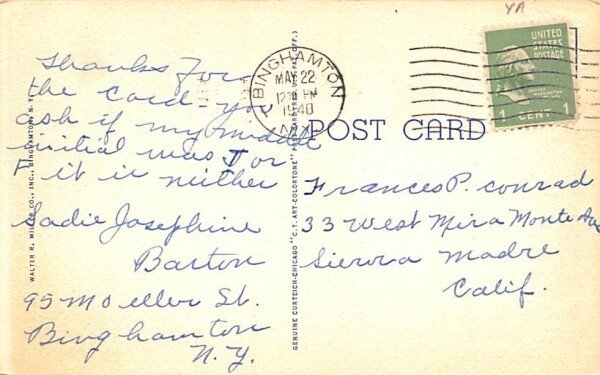 YA
UNITED
STATES
POSTAGE
GEORGE
WASHINGTON
1 CENT 1
BINGHAMTON
MAY 22
12 PM
1940
N.Y.
POST CARD
Thanks For
the card you
ask if my middle
initial was J or
F it is neither
Sadie Josephine
Barton
95 Moeller St.
Binghamton
N.Y.
Frances P. conrad
33 West Mira Monte Ave
Sierra Madre
Calif.
WALTER R. MILLER CO., INC., BINGHAMTON, N. Y.
GENUINE CURTEICH-CHICAGO "C. T. ART-COLORTONE" PAT. OFF.)